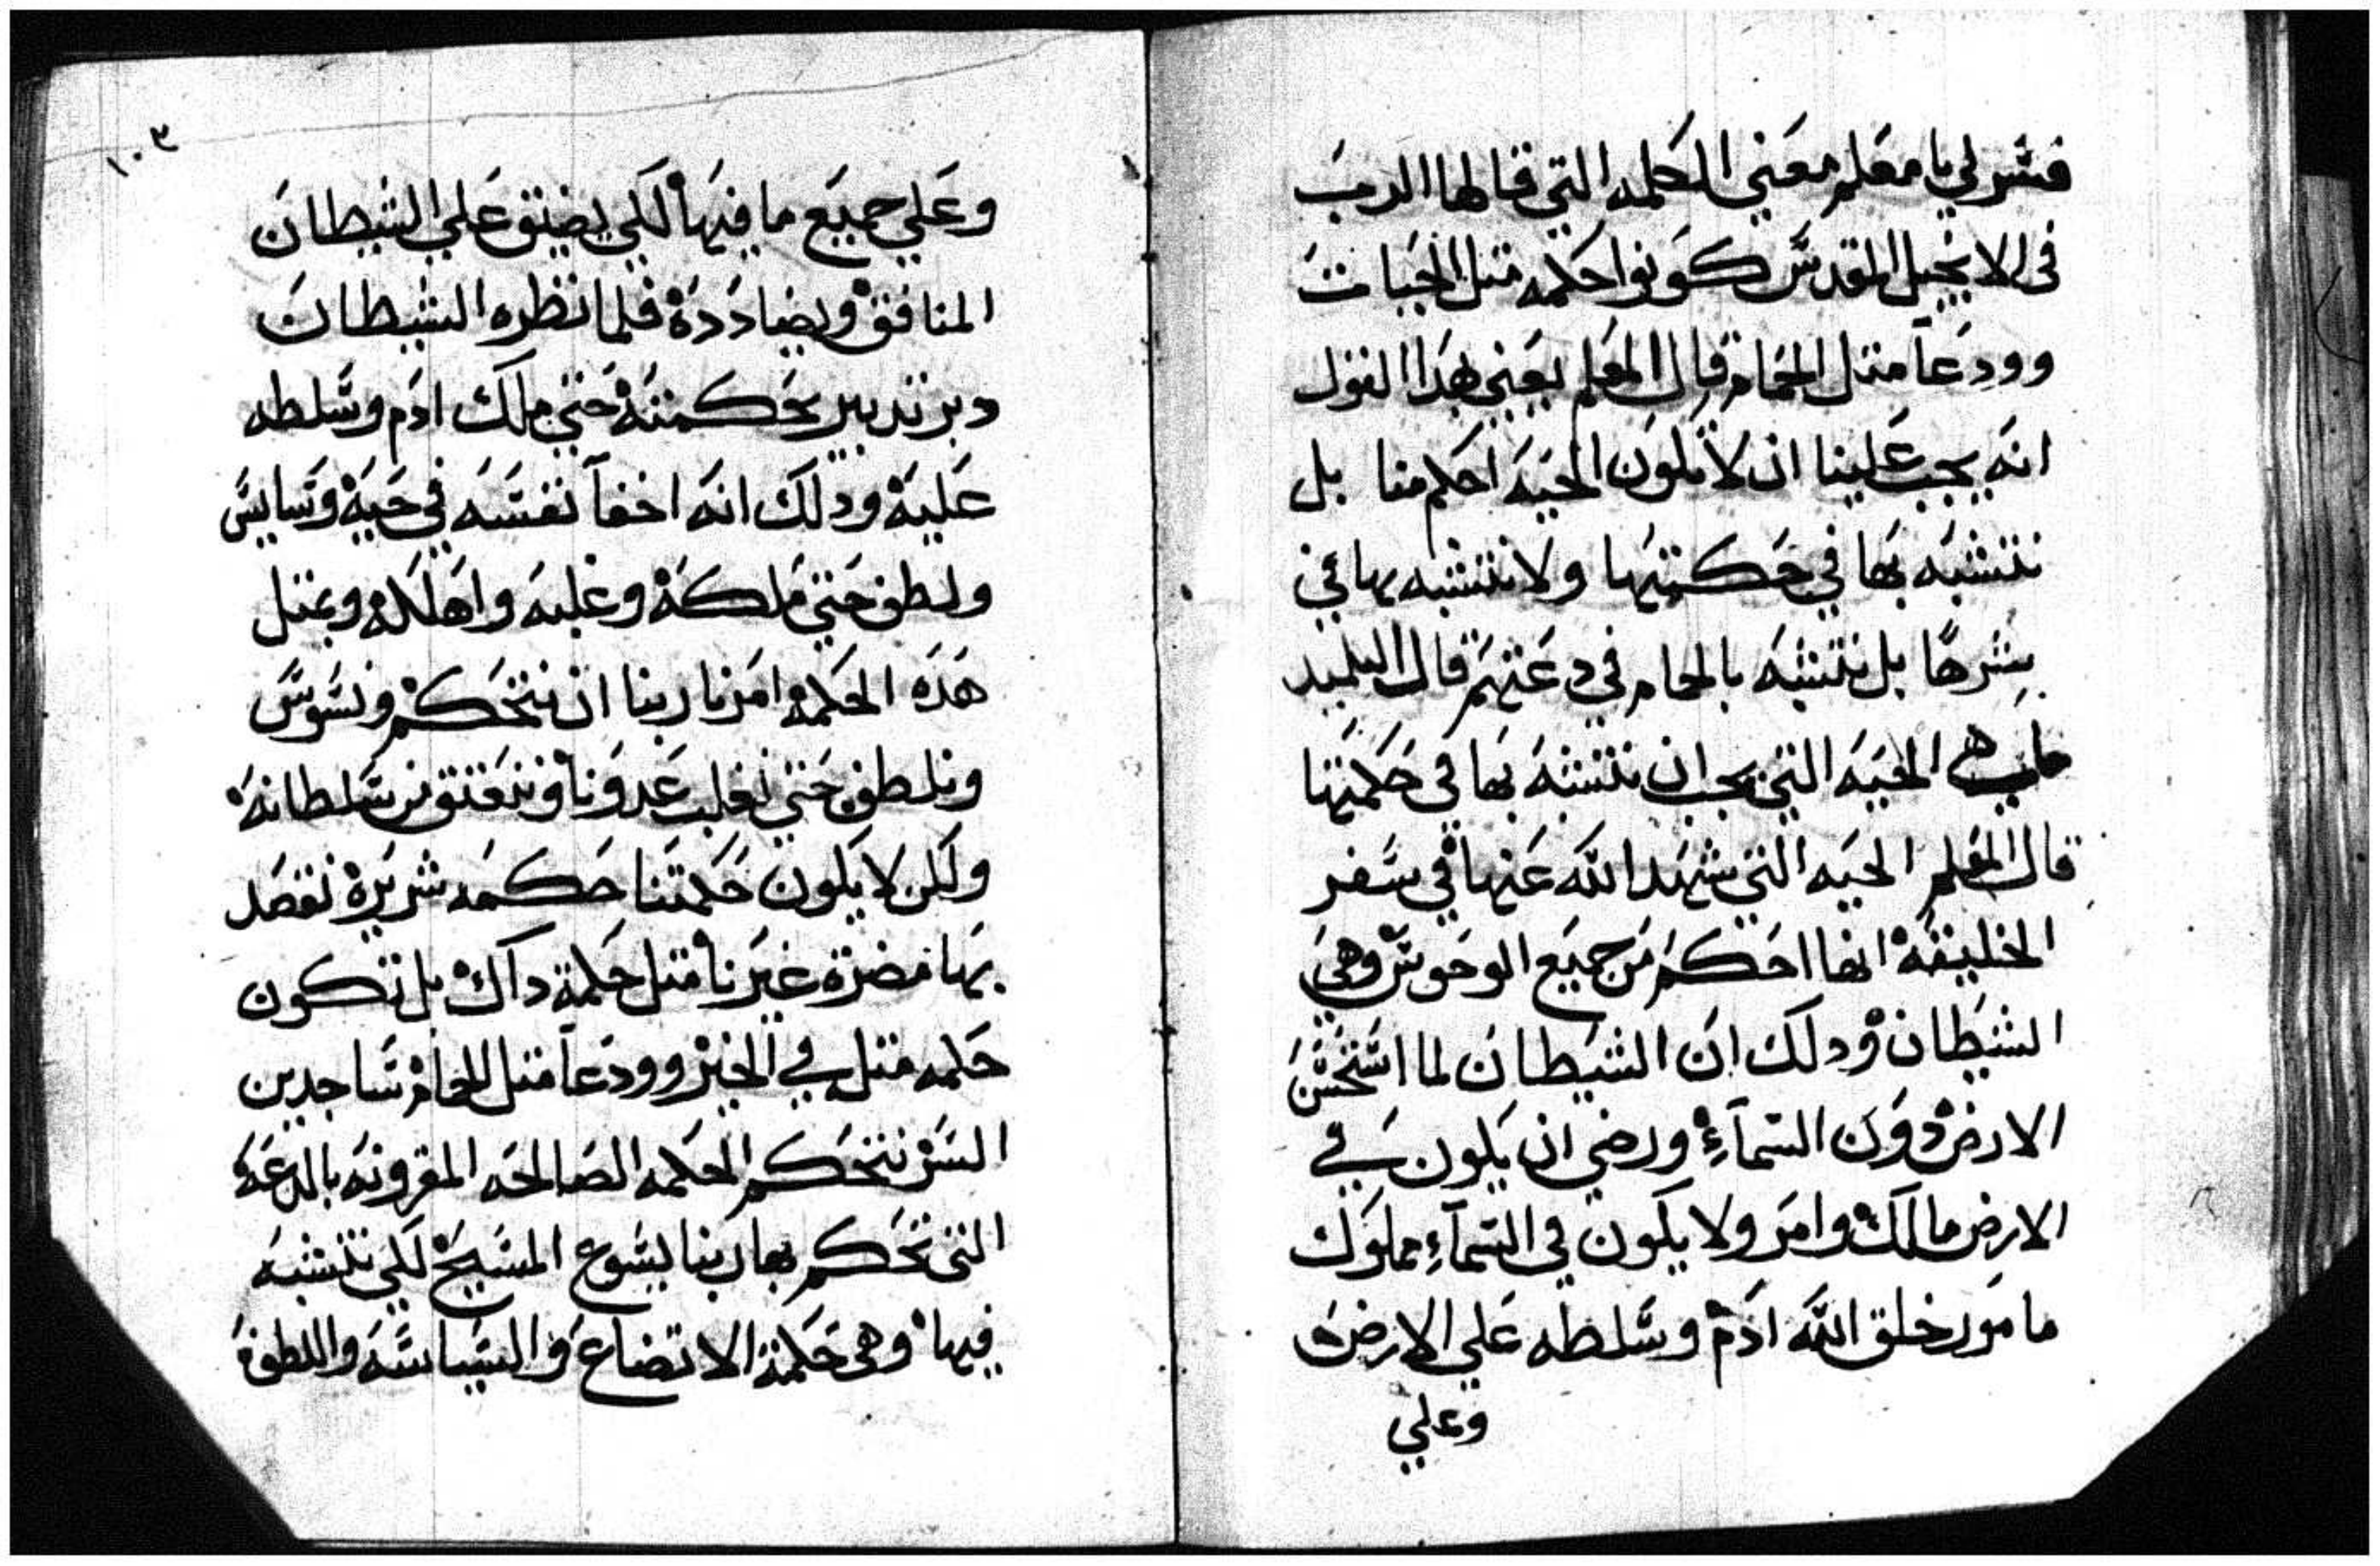 فسر لي يا معلم معني الكلمه التي قالها الرب
في الانجيل المقدس كونوا حكمه متل الحيات
وودعآ متل الحمام قال المعلم يعني بهدا القول
انه يجب علينا ان لا تكون الحيه احكم منا بل
نتشبه بها في حكمتها ولا نتشبه بها في
شرها بل نتشبه بالحمام في دعتهم قال التلميد
ما هي الحيه التي يجب ان نتشبه بها في حكمتها
قال المعلم الحيه التي شهد الله عنها في سفر
الخليقه انها احكم من جميع الوحوش وهي
الشيطان ودلك ان الشيطان لما استحسن
الارض دون السمآء ورضي ان يكون في
الارض مالك وامر ولا يكون في السمآء مملوك
مامور خلق الله ادم وسلطه علي الارض
وعلي
١٠٣
وعلي جميع ما فيها لكي يضيق علي الشيطان
المنافق ويضاددة فلما نظره الشيطان
دبر تدبير بحكمته حتي ملك ادم وسلطه
عليه ودلك انه اخفآ نفسه في حيه وسايس
ولطف حتي ملكه وغلبه واهلكه وبمتل
هده الحكمه امرنا ربنا ان نتحكم ونسوس
ونلطف حتي نغلب عدونا ونعتق من سلطانه
ولكن لا يكون حكمتنا حكمه شريره نقصد
بها مضرة غيرنا متل حكمة داك بل تكون
حكمه متل في الخير وودعآ متل الحمام ساجدين
السر نتحكم الحكمه الصالحه المقرونه بالدعه
التي تحكم بها ربنا يسوع المسيح لكي نتشبه
فيها وهي حكمة الاتضاع والسياسه واللطف